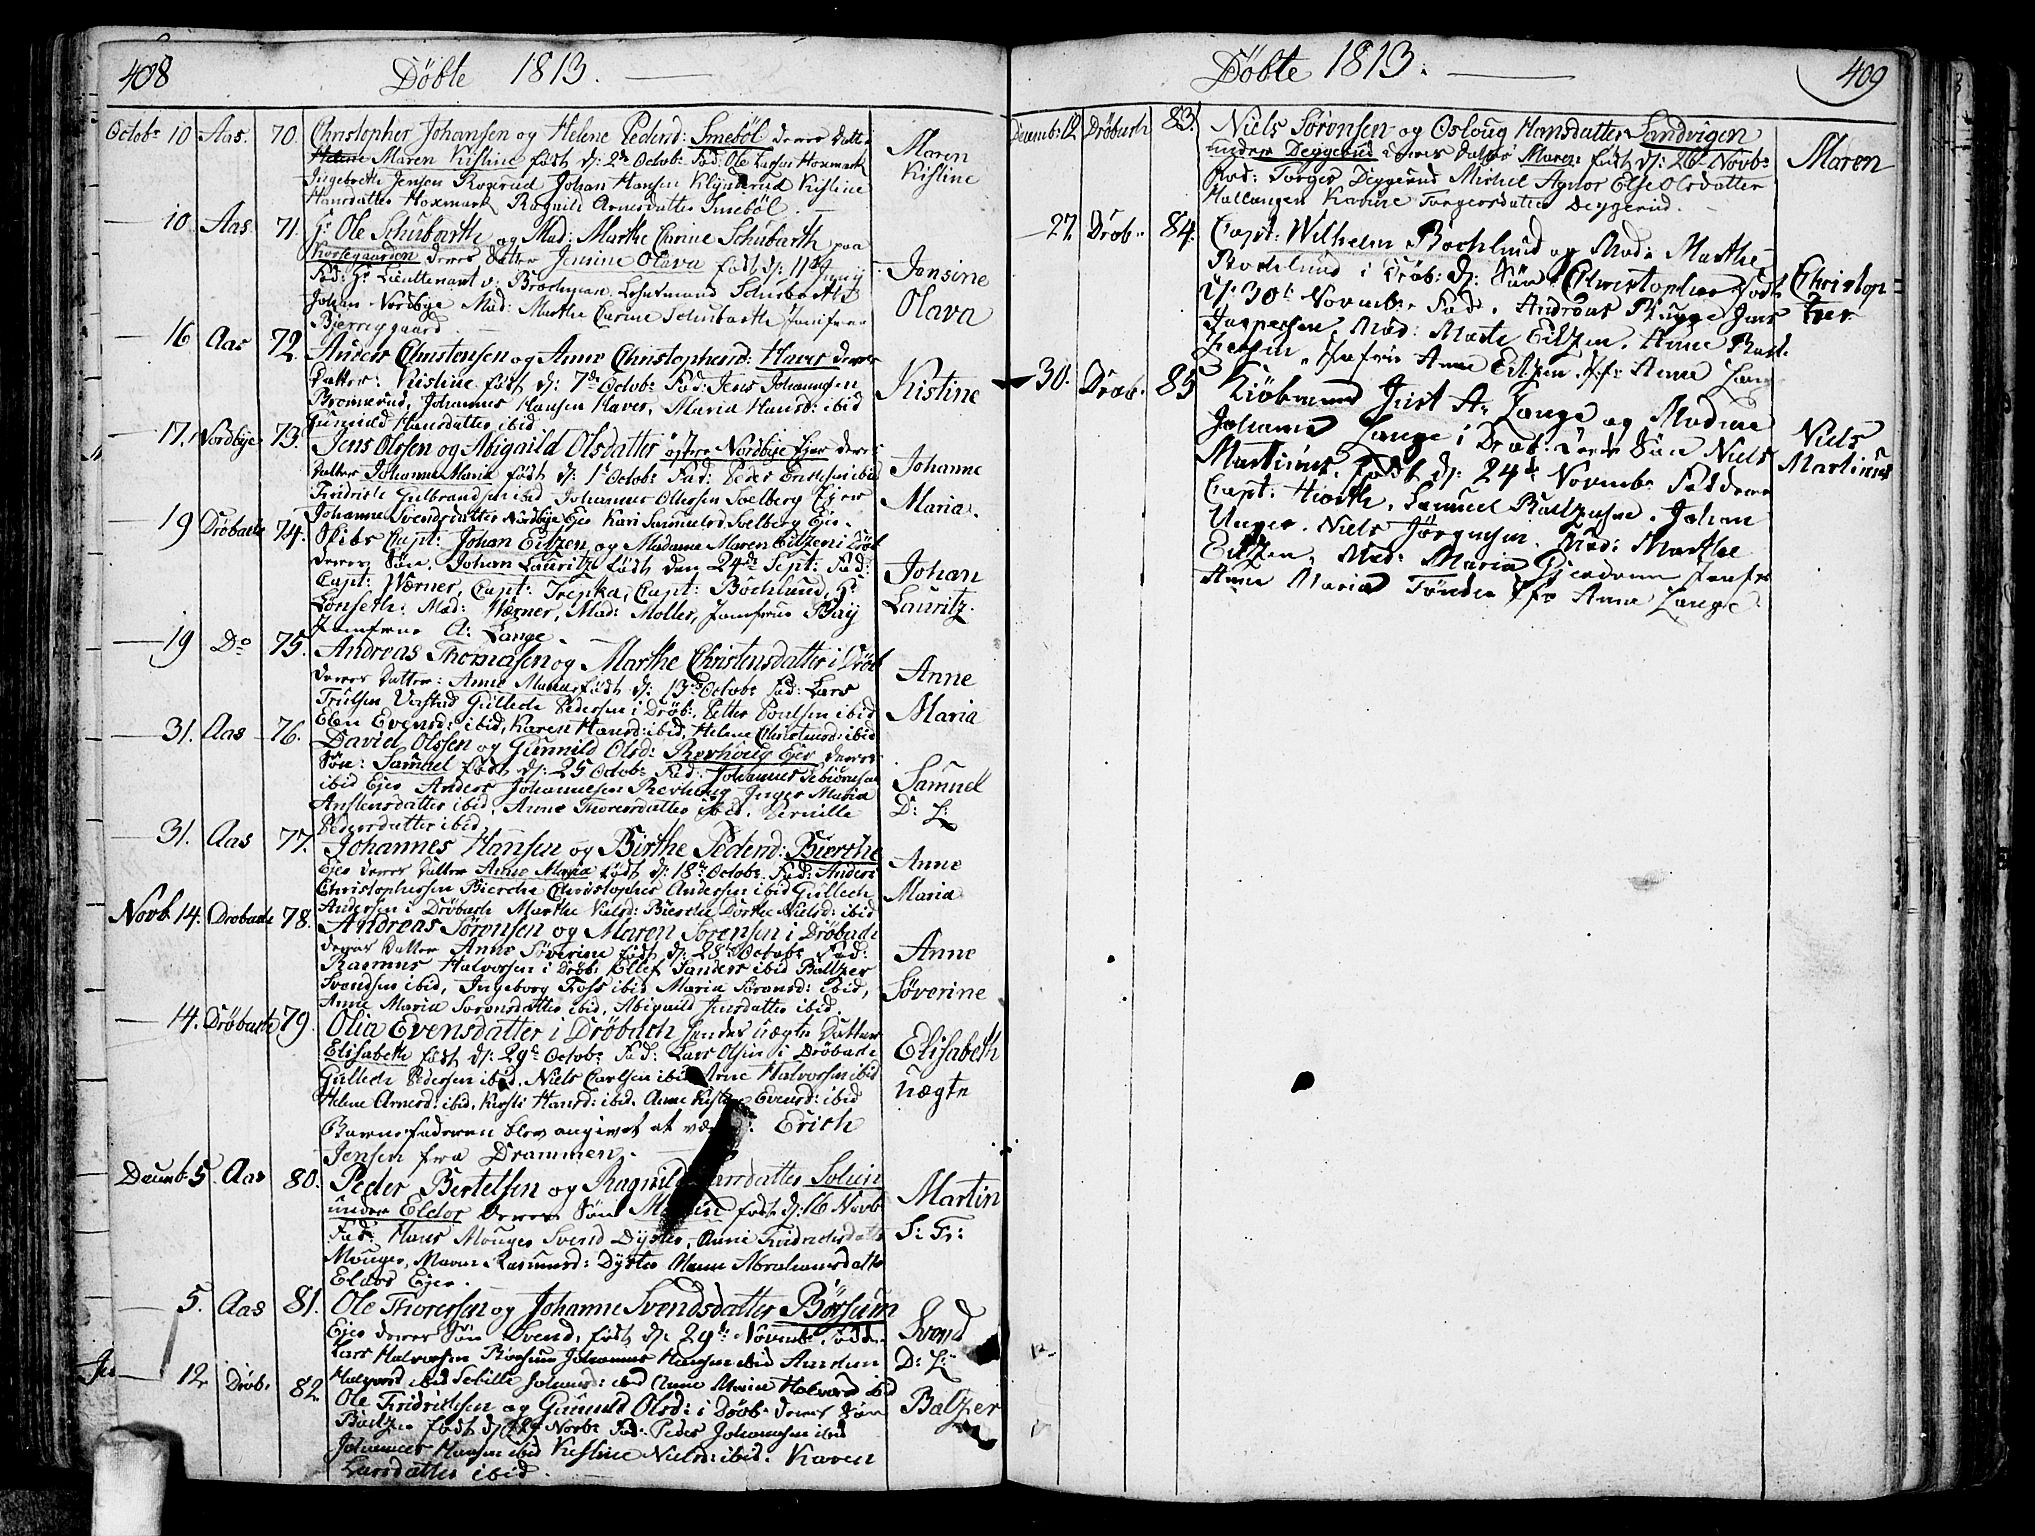 408
Döbte 1813.
Octobr 10 Aas. 70. Christopher Johansen og Helene Pedersd: Smeböl deres datter
Helene Maren Kistine födt d: 2de Octobr Fad: Ole Larsen Hoxmark
Ingebreth Jensen Rogerud Johan Hansen Klynderud Kistine
Hansdatter Hoxmark Ragnild Arnesdatter Smeböl.
Maren
Kistine
10 Aas 71. Hr Ole Schubarth og Mad: Marthe Carine Schubarth paa
Korsegaarden deres datter Jensine Olava födt d: 11te Junij
Fad: Hr Lieutenant v: Brochman, Schubarth
Johan Nordbye Mad: Marthe Carine Schubarth Jomfrue
Bierregaard.
Jensine
Olava
16 Aas 72. Anders Christensen og Anne Christophersd: Haver deres
datter: Kistine födt d: 7de Octobr Fad: Jens Johannesen
Brönnerud, Johannes Hansen Haver, Maria Hansd: ibid
Gunnild Hansdatter ibid
Kistine
17. Nordbye 73. Jens Olssen og Abigaild Olsdatter östre Nordbye Ejer deres
datter Johanne Maria födt d: 1t Octobr Fad: Peder Erichsen ibid
Fridrich Gulbrandsen ibid Johannes Ollersen Solberg Ejer
Johanne Svendsdatter Nordbye Eje Kari Samuelsd Solberg Eje.
Johanne
Maria.
19 Dröbach 74. Skibs Capt: Johan Eitzen og Madame Maren Eitzen i Dröb
deres Sön. Johan Lauritz födt den 24de Sept: Fad:
Capt: Wærner, Capt: Trepka, Capt: Bochlund, Hr
Lonseth: Mad: Wærner, Mad: Moller, Jomfrue Bay
Jomfrue A: Lange.
Johan
Lauritz.
19 Do 75. Andreas Thomasen og Marthe Christensdatter i Dröb
deres datter: Anne Maria födt d: 13de Octobr Fad: Lars
Trulsen Gullech Pedersen i Dröb: Petter Poulsen ibid
Elen Evensd: ibid, Karen Hansd: ibid, Helene Christensd: ibid
Anne
Maria
31. Aas 76. David Olssen og Gunnild Olsd: Revhoug Eje deres
Sön: Samuel födt d: 25 Octobr Fad: Johannes
ibid Eje Anders Johannesen Revhoug Inger Maria
Anstensdatter ibid. Anne Thoresdatter ibid. Pernille
Pedersdatter ibid.
Samuel
D: L:
31. Aas 77. Johannes Hansen og Birthe Pedersd: Bierche
Eje deres datter Anne Maria födt d: 18de Octobr Fad: Anders
Christophersen Bierche Christopher Andersen ibid Gullech
Andersen i Dröbach Marthe Nielsd: Bierche Dorthe Nielsd: ibid
Anne
Maria
Novb 14. Dröbach 78. Andreas Sörensen og Maren Sörensen i Dröbach
deres datter Anne Söverine födt d: 28de Octobr Fad:
Rasmus Halvorsen i Dröb: Ellef Sanders ibid Baltzer
Svendsen ibid, Ingeborg Foss ibid Maria Sörensd: ibid,
Anne Maria Sörensdatter ibid, Abigaild Jensdatter ibid.
Anne
Söverine
14. Dröbach 79. Olia Evensdatter i Dröbach hendes uægte datter
Elisabeth födt d: 29de Octobr Fad: Lars Olsen i Dröbach
Gullech Pedersen ibid, Niels Carlsen ibid Arne Halvorsen ibid
Helene Arnesd: ibid, Kirsti Hansd: ibid. Anne Evensd: ibid
Barnefaderen blev angivet at være: Erich
Jensen fra Drammen.
Elisabeth
uægte
Decemb: 5. Aas 80. Peder Bertelsen og Ragnild Solum
under Eldor deres Sön Martin födt d: 16 Novb
Fad: Hans Mouger Svend Dyster, Anne Fridrichsdatter
Mouger, Maren Rasmusd: Dyster Anne Abrahamsdatter
Eldors Eje.
Martin
S: Fr:
5. Aas 81. Ole Thoressen og Johanne Svendsdatter Börsum
Eje deres Sön Svend, födt d: 29de Novemb: Fadd:
Lars Halvorsen Börsum Johannes Hansen ibid Amden
Halvorsd ibid Sebille ibid Anne Marie Halvorsd ibid
Svend
D: L:
12 Dröb. 82. Ole Fridrichsen og Gunild Olsd: i Dröb: deres Sön
Baltzer födt d: 29 Novbr Fad: Peder Johannesen ibid
Johannes Hansen ibid Kistine Nielsd: ibid. Karen
Larsdatter ibid.
Baltzer
409
Döbte 1813.
Decemb: 12. Dröbach 83. Niels Sörensen og Osloug Hansdatter Sandvigen
under Deggerud deres datter Maren födt d: 26 Novbr
Fad: Torger Deggerud Michel Agnor Else Olsdatter
Hallangen Karine Torgersdatter Deggerud.
Maren
27. Dröb: 84. Capt: Wilhelm Bochlund og Mad: Marthe
Bochlund i Dröb: d: Sön Christopher födt
d: 30t Novemb: Fad: Andreas Bugge Jens
Jaspersen. Mad: Marte Eitzen. Anne
Jfr Anne Eitzen Jfr: Anne Lange
Christop=
her.
30. Dröb. 85 Kiöbmand Just A: Lange og Madme
Johanne Lange i Dröb: deres Sön Niels
Martinus, födt d: 24de Novemb: Faddere
Capt: Hiorth, Samuel Baltzersen. Johan
Unger. Niels Jörgensen. Mad: Marthe
Eitzen, Mad: Maria Gierdrum Jomfr
Anne Maria Tönder Jfr Anne Lange
Niels
Martinus